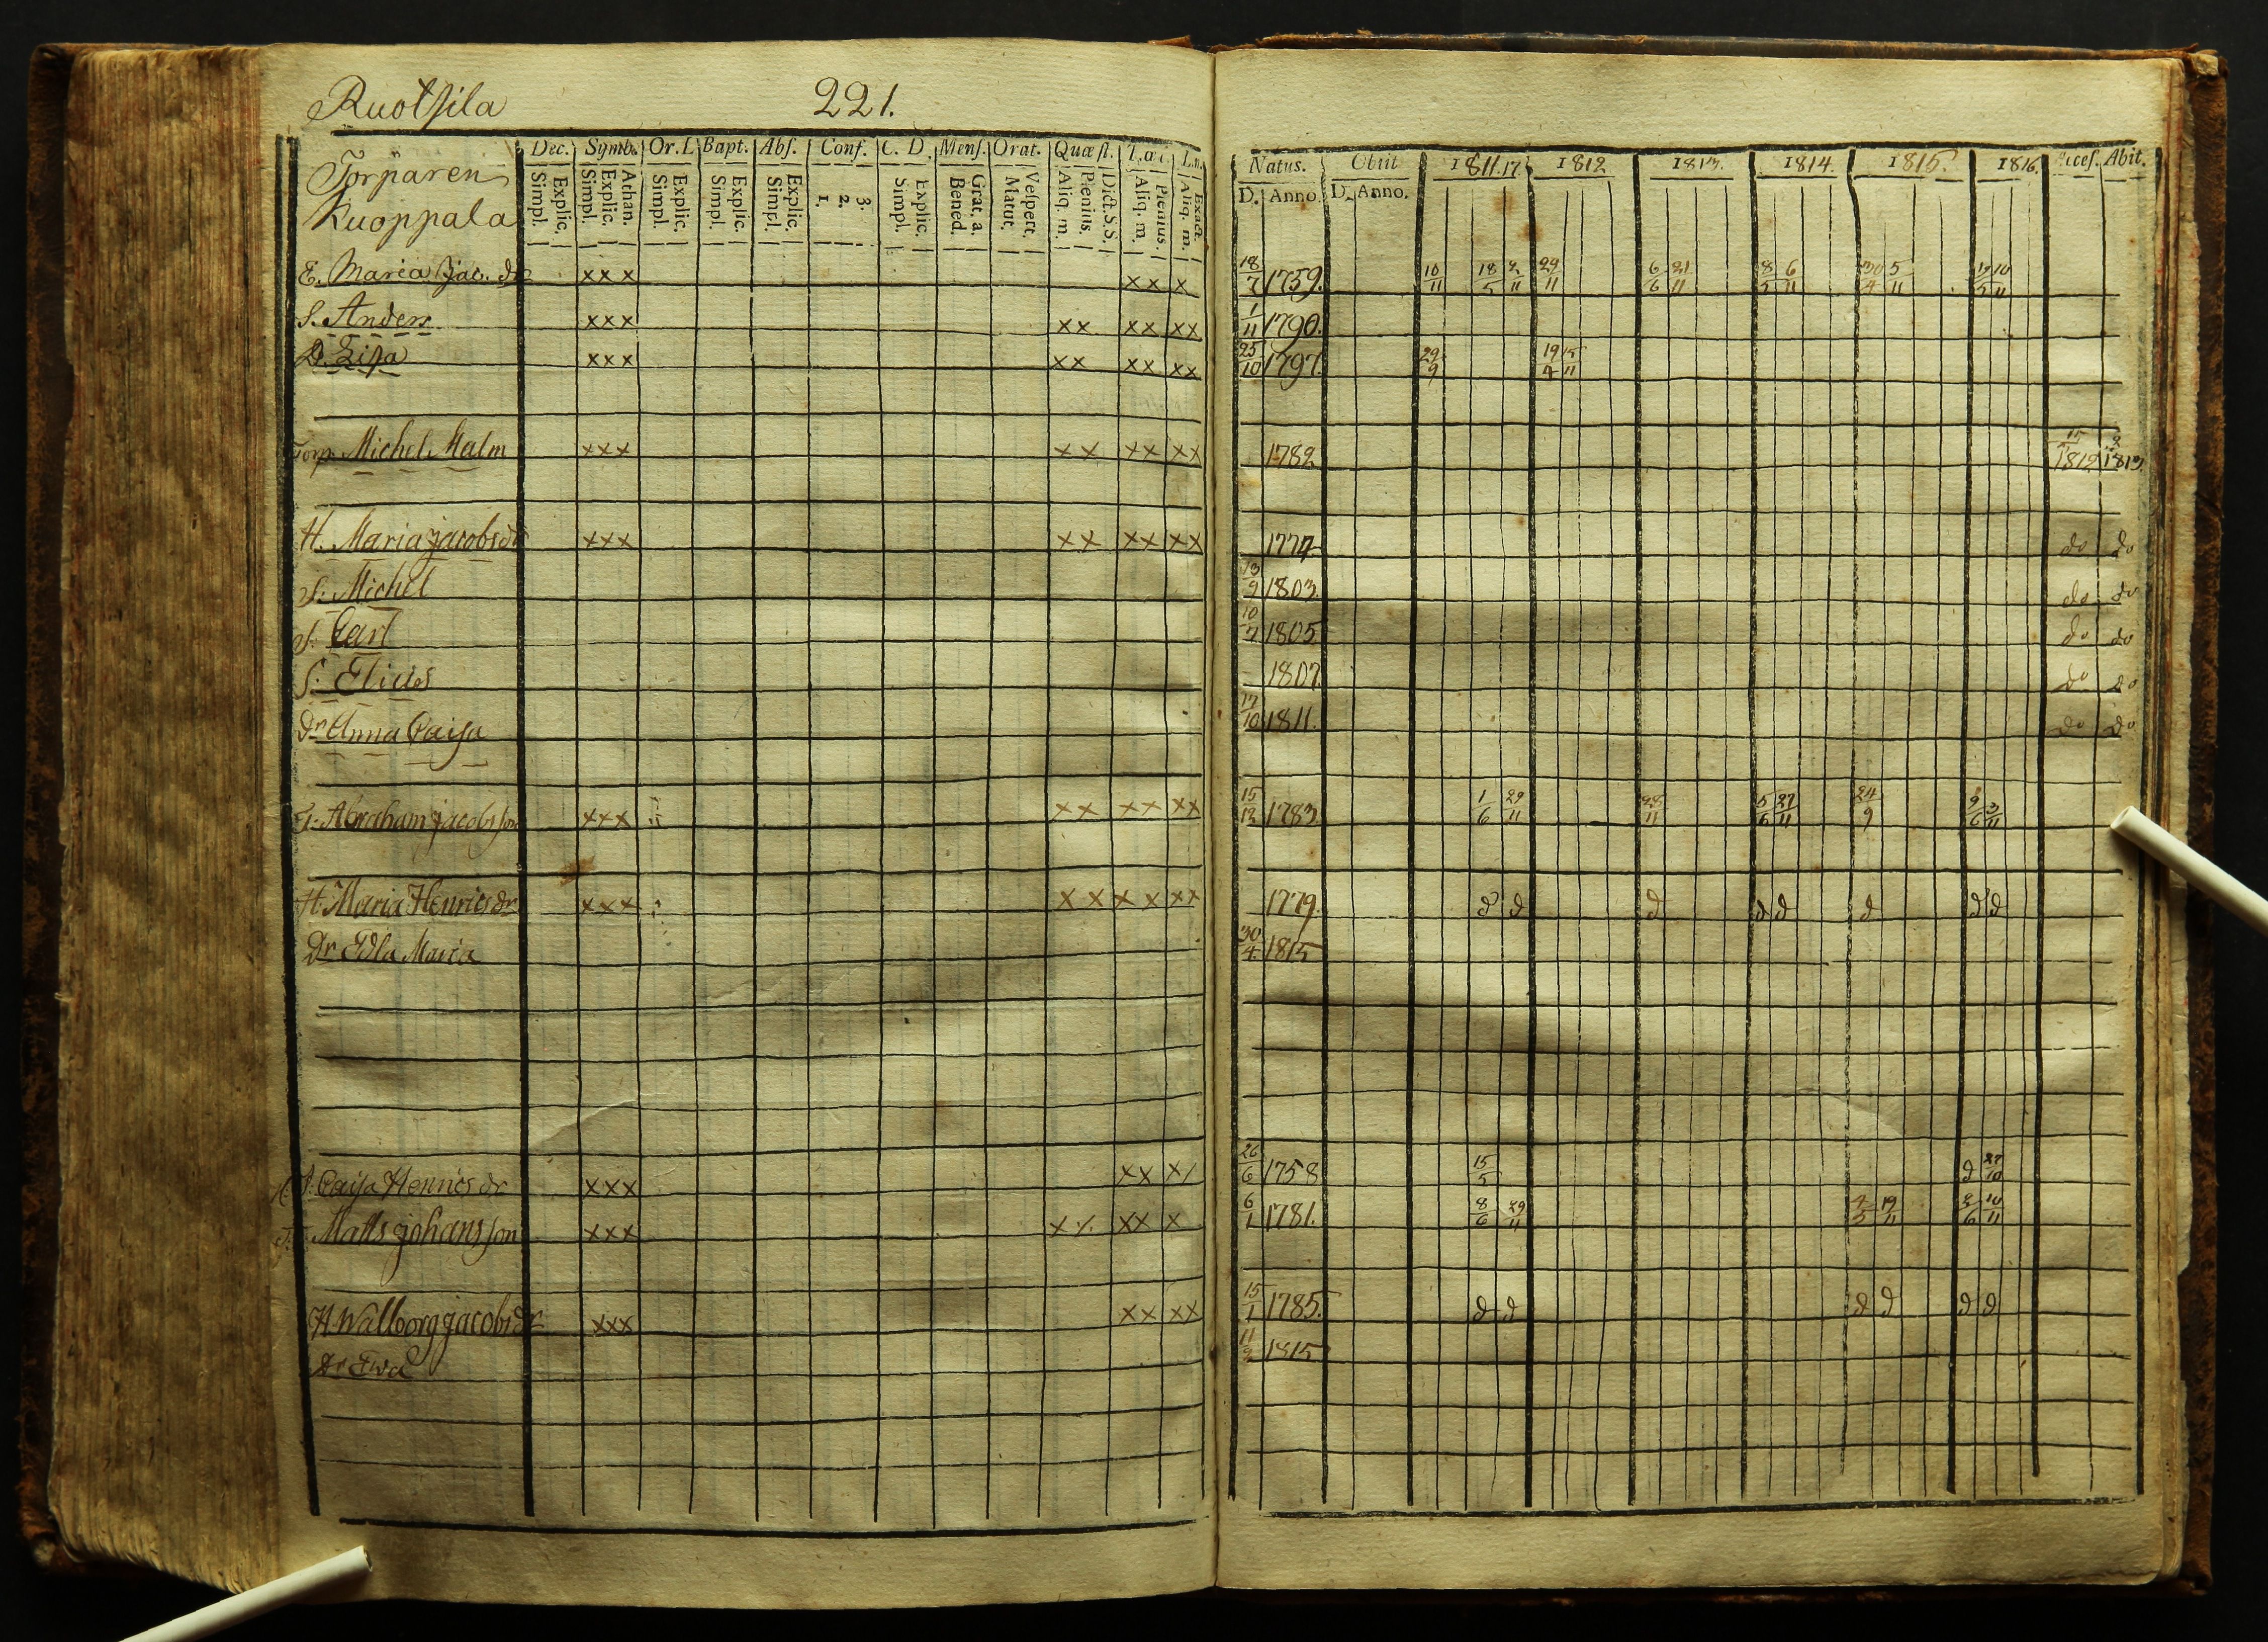 Ruotsila 221.
Torparen
Kuoppala
Dec. Symb. Or. D. Bapt. Abs. Conf. C. D. Mens. Orat. Quæst.
Explic. Simpl. Athan. Explic. Simpl. Explic. Simpl. Explic. Simpl. Explic. Simpl. 3. 2. 1. Explic. Simpl. Grat. a. Bened. Vespert. Matut. Dict. S.S. Plenius. Aliq. m. Plenius. Aliq. m. Exact. Aliq. m.
Natus. Obiit 1811.17 1812 1813. 1814. 1815. 1816. Acces. Abit.
D. Anno. D. Anno.
E. Maria Jac. dr xxx xx x 18/7 1759. 10/11 18/5 2/11 29/11 6/6 21/11 8/5 6/11 30/4 5/11 10/11
S. Anders xxx xx xx xx 1/11 1790.
D. Lisa xxx xx xx xx 25/10 1797. 29/9 19/4 15/11
Torp. Michel Malm xxx xx xx xx 1782 1812 1813
H. Maria Jacobsdr xxx xx xx xx 1774 do do
S. Michel 13/9 1803. do do
S. Carl 10/7 1805 do do
S. Elias 1807. do do
Dr Anna Caisa 17/10 1811. do do
T. Abraham Jacobsson xxx xx xx xx 15/12 1783. 1/6 29/11 28/11 5/6 27/11 24/9 9/6 3/11
H. Maria Henricsdr xxx xx xx xx 1779. d d d d d d d d
Dr Edla Maria 30/4 1815
Caisa Henricsdr xxx xx x/ 26/6 1758 15/5 d 27/10
Matts Johansson xxx xx xx x 6/1 1781. 8/6 29/11 19/11 2/6 10/11
H. Walborg Jacobsdr xxx xx xx 15/1 1785. d d d d d d
Dr Ewa 11/2 1815